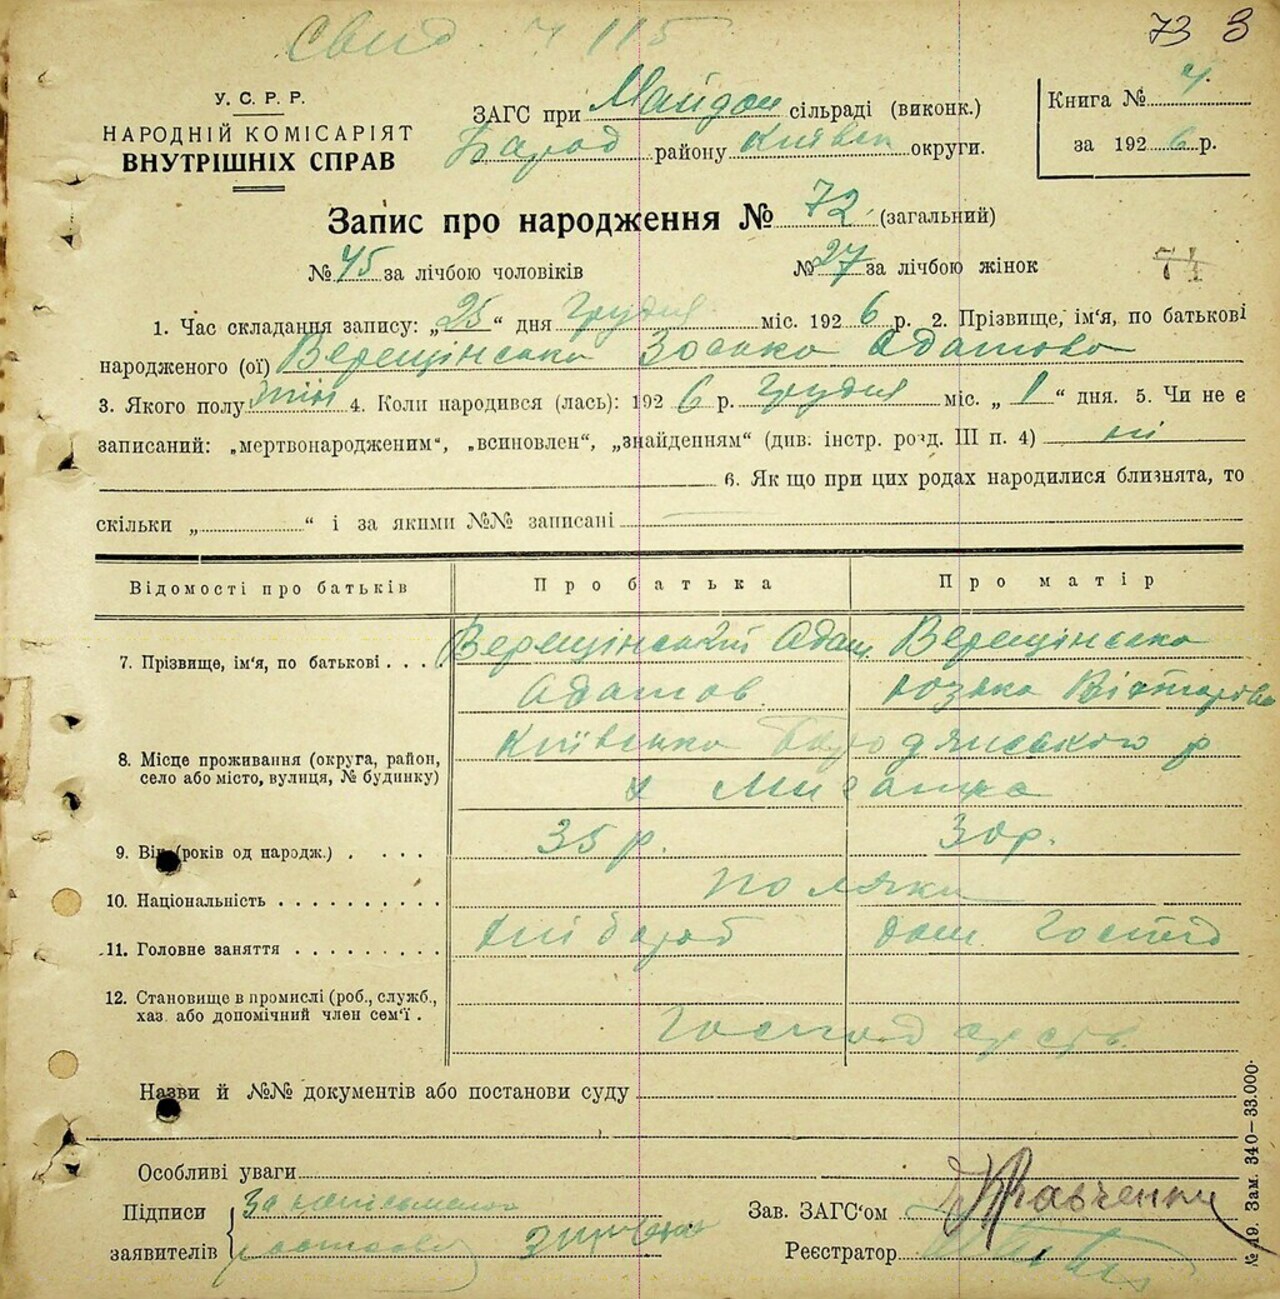 Свид. 4 115
73 3
У. С. Р. Р.
НАРОДНІЙ КОМІСАРІЯТ
ВНУТРІШНІХ СПРАВ
ЗАГС при Майдан сільраді (виконк.)
Барод району Київськ округи.
Книга № 4
за 1926 р.
Запис про народження № 72 (загальний)
№ 45 за лічбою чоловіків № 27 за лічбою жінок
1. Час складання запису: „25“ дня Грудня міс. 1926 р. 2. Прізвище, ім'я, по батькові
народженого (ої) Верещінська Зоська Адамова
3. Якого полу жін 4. Коли народився (лась): 1926 р. Грудня міс. „1“ дня. 5. Чи не є
записаний: „мертвонародженим“, „всиновлен“, „знайденням“ (див. інстр. розд. III п. 4) ні
6. Як що при цих родах народилися близнята, то
скільки „ “ і за якими №№ записані
Відомості про батьків Про батька Про матір
7. Прізвище, ім'я, по батькові . . . Верещінський Адам Верещінська
Адамов Юзька Вікторова
8. Місце проживання (округа, район, село або місто, вулиця, № будинку) Київська Бародянського р
х Мигалка
9. Вік (років од народж.) . . . . 35 р. 30 р.
10. Національність . . . . . . . . . . поляки
11. Головне заняття . . . . . . . . . хлібороб дом. Господ
12. Становище в промислі (роб., служб.,
хаз. або допомічний член сем'ї . Господарств.
Назви й №№ документів або постанови суду
Особливі уваги
Підписи За неписьмен
заявителів
Зав. ЗАГС'ом Кравченко
Реєстратор
№ 19. Зам. 340—33.000.